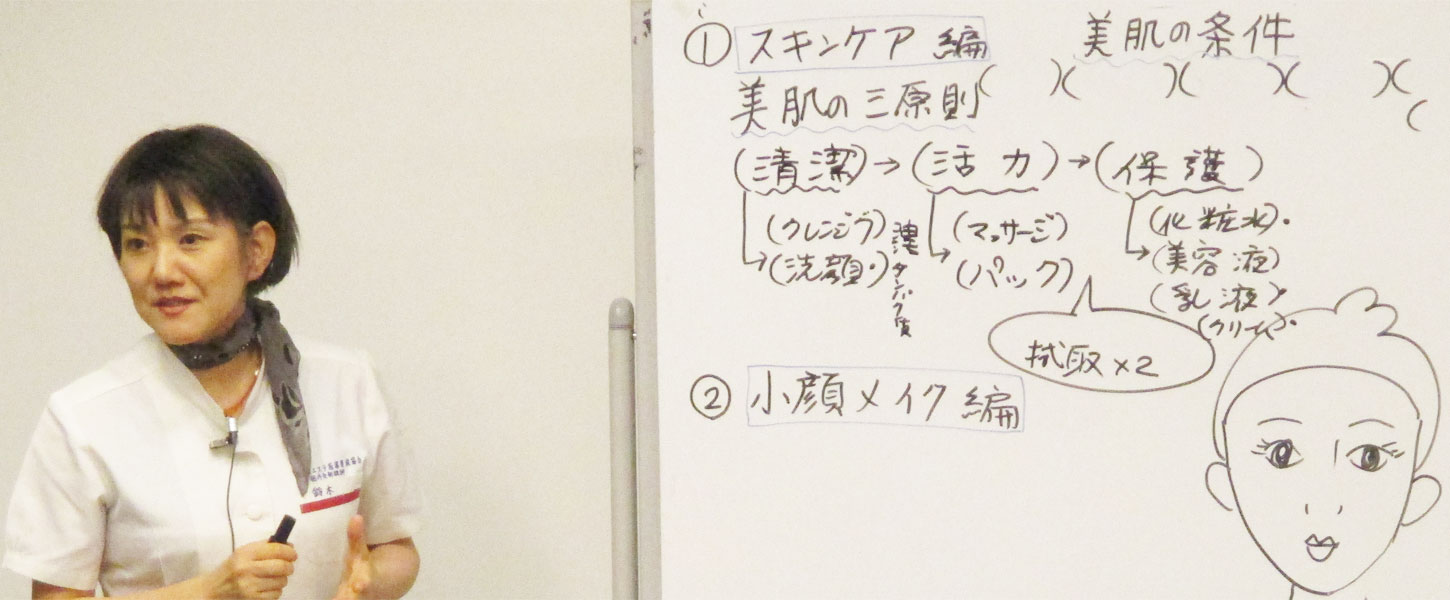 ① スキンケア編
美肌の条件
( )( )( )( )(
(
美肌の三原則
(清潔)→(活力)→(保護)
(クレンジング)
(洗顔・)
タンパク質
(マッサージ)
(パック)
(化粧水)・
(美容液)
(乳液)・
(クリーム)・
拭取×2
② 小顔メイク編
鈴木